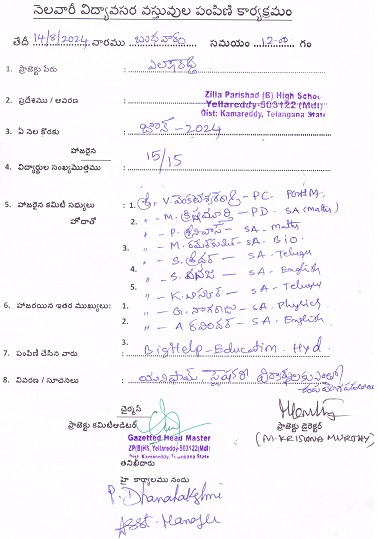 నెలవారీ విద్యావసర వస్తువుల పంపిణి కార్యక్రమం
తేదీ 14/8/2024 వారము బుధవారం సమయం 12-00 గం
1. ప్రాజెక్టు పేరు : ఎల్లారెడ్డి
2. ప్రదేశము / ఆవరణ :
Zilla Parishad (B) High School
Yellareddy-503122 (Mdl)
Dist: Kamareddy, Telangana State
3. ఏ నెల కొరకు : జూన్ - 2024
హాజరైన
4. విద్యార్థుల సంఖ్యమొత్తము : 15/15
5. హాజరైన కమిటి సభ్యులు : 1. శ్రీ. V. వెంకటేశ్వరరావు - PC -
హోదాతో 2. " - M. క్రిష్ణమూర్తి - PD - SA (maths)
" - P. శ్రీనివాస్ - SA - maths
3. " - M. - SA - Bio
" - S. శ్రీధర్ - SA - Telugu
" - S. - SA - English
" - K. - SA - Telugu
6. హాజరయిన ఇతర ముఖ్యులు: 1. " - G. నాగరాజు - SA - Physics
2. " - A రవిందర్ - SA - English
3.
7. పంపిణి చేసిన వారు : BigHelp - Education - Hyd
8. వివరణ / సూచనలు : యునిఫామ్, స్టేషనరీ
ఛైర్మన్
ప్రాజెక్టు కమిటీఆడిటర్ ప్రాజెక్టు డైరెక్టర్
Gazetted Head Master (M. KRISHNA MURTHY)
ZP(B)HS, Yellareddy-503122(Mdl)
Dist: Kamareddy, Telangana State
తనిఖీదారు
హై కార్యాలము నందు
P. Dhanalakshmi
Asst. Manager